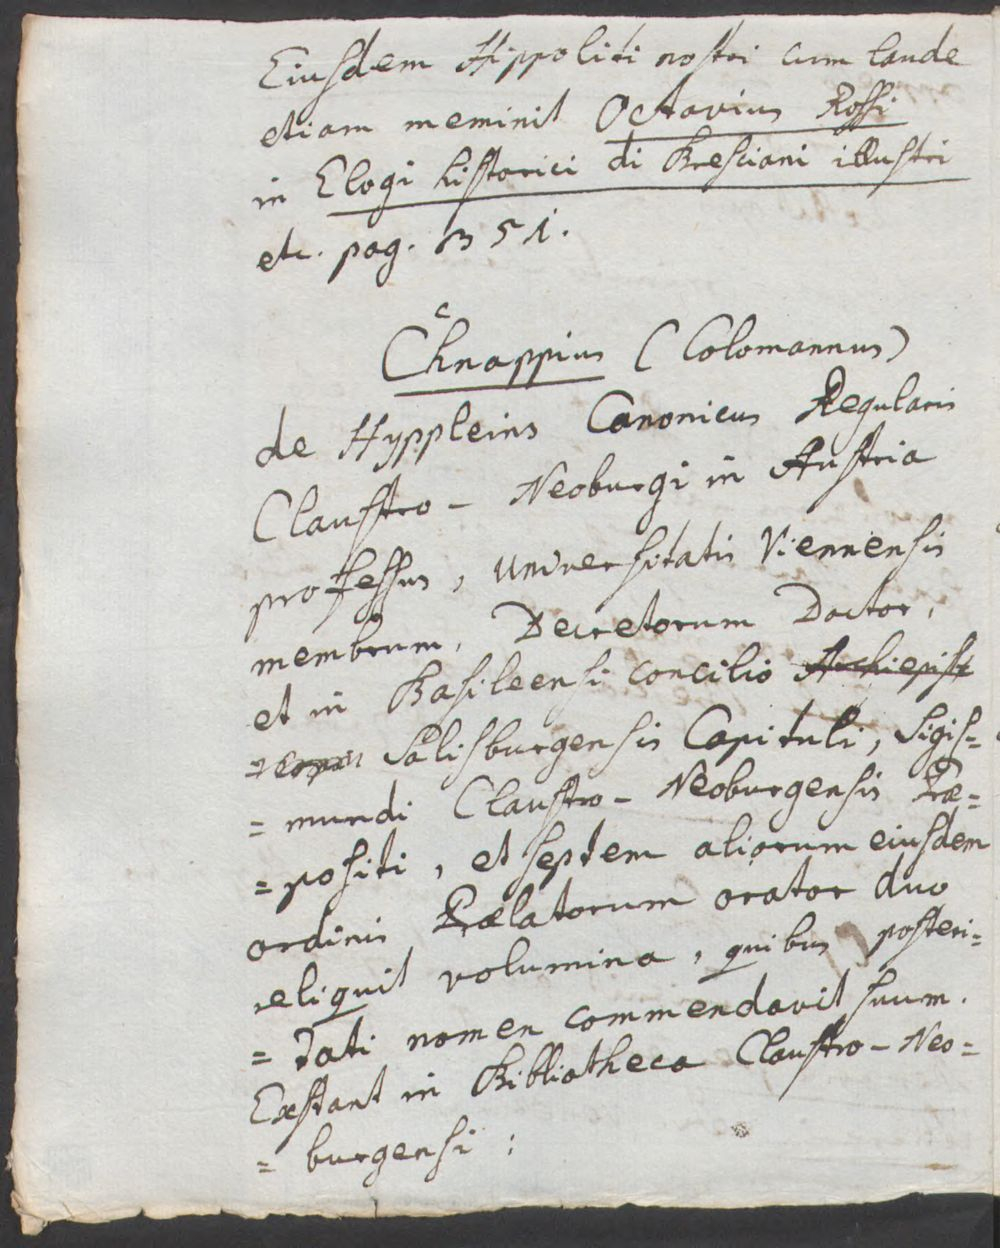 Eiusdem Hippoliti nostri cum laude
etiam meminit Octavius Rossi
in Elogi historici di Bresciani illustri
etc. pag. 351.
Chnappius (Colomannus)
de Hyppleins Canonicus Regularis
Claustro - Neoburgi in Austria
professus, Universitatis Viennensis
membrum, Decretorum Doctor,
et in Basileensi concilio Archiepis=
=copi Salisburgensis Capituli, Sigis=
= mundi Claustro - Neoburgensis Præ=
= positi, et septem aliorum eiusdem
ordinis Prælatorum orator duo
reliquit volumina, quibus posteri=
= tati nomen commendavit suum.
Exstant in Bibliotheca Claustro - Neo=
= burgensi :